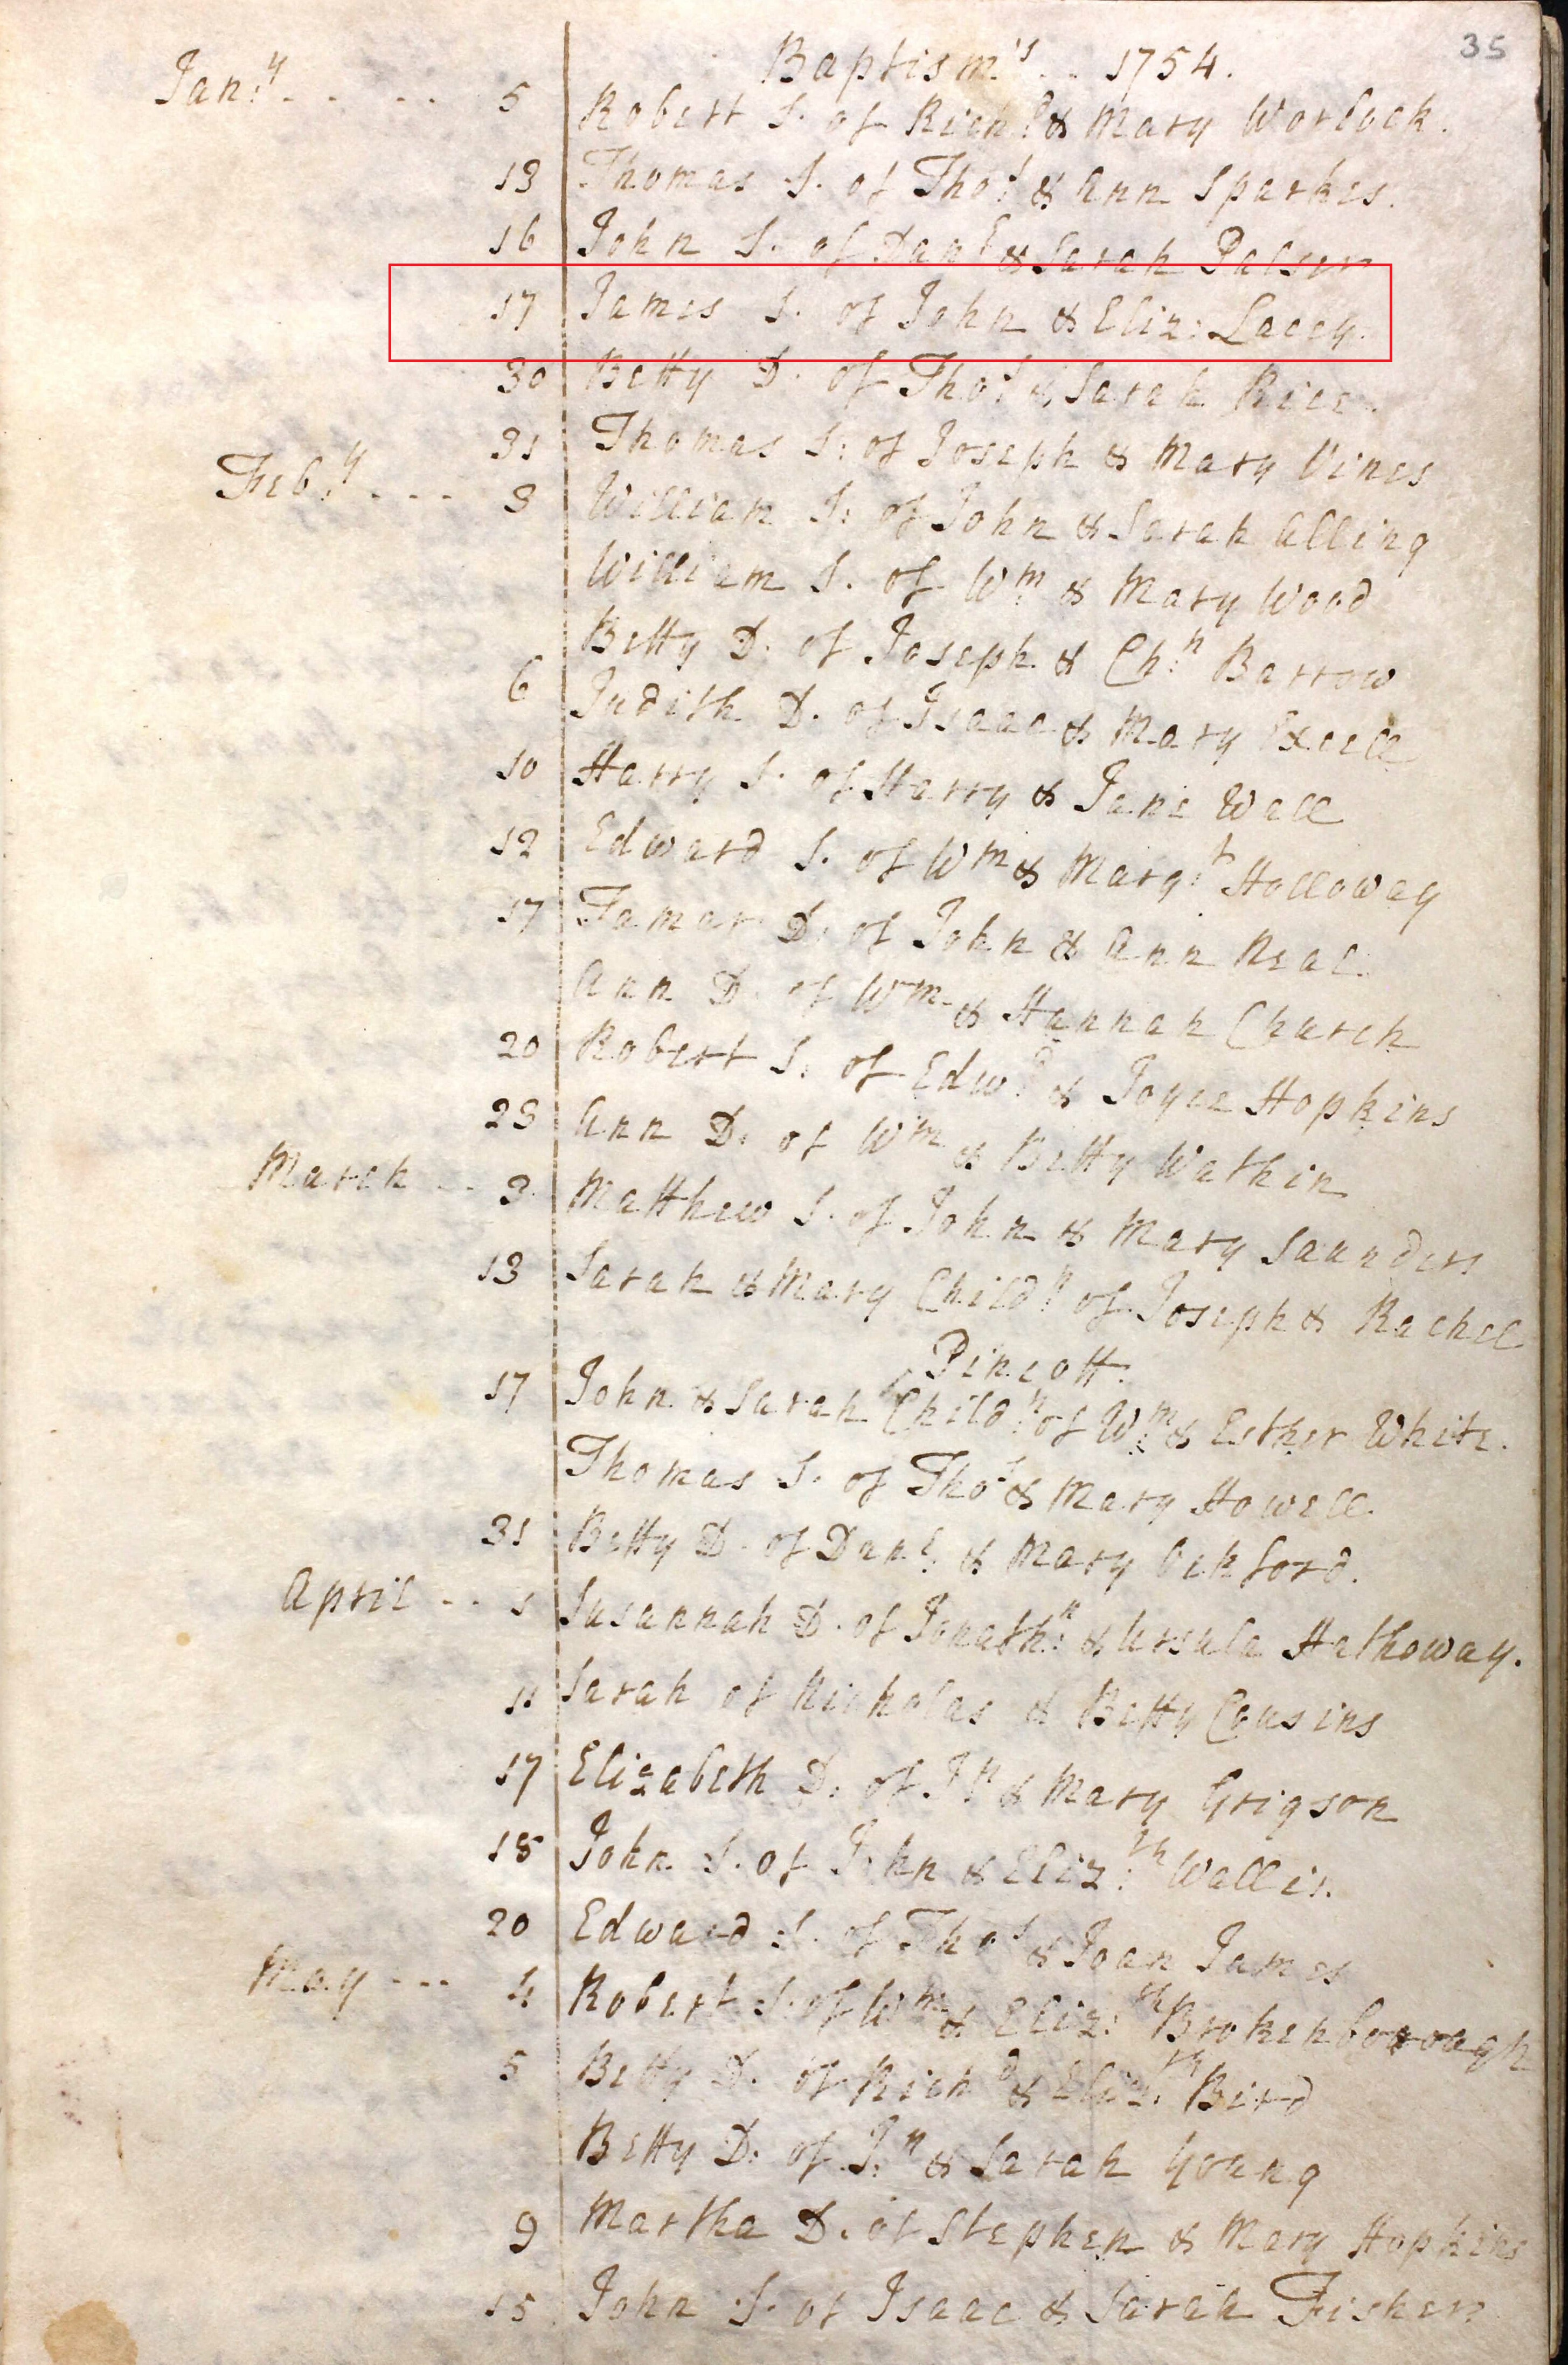 35
Baptism.'s .. 1754.
Jan.y - - - - 5 Robert S. of Rich.d & Mary Worlock.
13 Thomas S. of Tho.s & Ann Sparkes.
16 John S. of Dan.l & Sarah Palser
17 James S. of John & Eliz: Lacey.
30 Betty D. of Tho.s & Sarah Rice.
31 Thomas S: of Joseph & Mary Vines
Feb.y - - - 3 William S: of John & Sarah Alling
William S. of W.m & Mary Wood
Betty D. of Joseph & Ch.n Barrow
6 Judith D. of Isaac & Mary Excell
10 Harry S. of Harry & Jane Wall
12 Edward S. of Wm & Marg.t Holloway
17 Tamar D. of John & Ann Neal.
Ann D. of Wm & Hannah Church
20 Robert S. of Edw.d & Joyce Hopkins
23 Ann D. of Wm & Betty Wathin
March - - 3 Matthew S. of John & Mary Saunders
13 Sarah & Mary Child.n of Joseph & Rachel
Pincott.
17 John & Sarah Child.n of W.m & Esther White.
Thomas S. of Tho.s & Mary Howell.
31 Betty D. of Dan.l & Mary Ockford.
April - - 1 Susannah D. of Jonath.n & Ursula Hathoway.
11 Sarah of Nicholas & Betty Cousins
17 Elizabeth D. of J.n & Mary Grigson
18 John S. of John & Eliz.th Wallis.
20 Edward S. of Tho.s & Joan James
May - - - 4 Robert S. of Wm & Eliz.th Brokenborough
5 Betty D. of Rich.d & Eliz.th Bird
Betty D. of J.n & Sarah Young
9 Martha D. of Stephen & Mary Hopkins
15 John S. of Isaac & Sarah Fisher